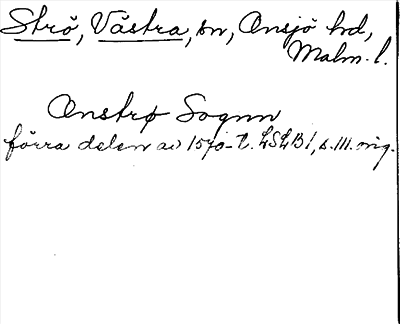 Strö, Västra, sn, Onsjö hd,
Malm. l.
Onstrø Sognn
förra delen av 1570-t. LSLB 1, s. 111. orig.